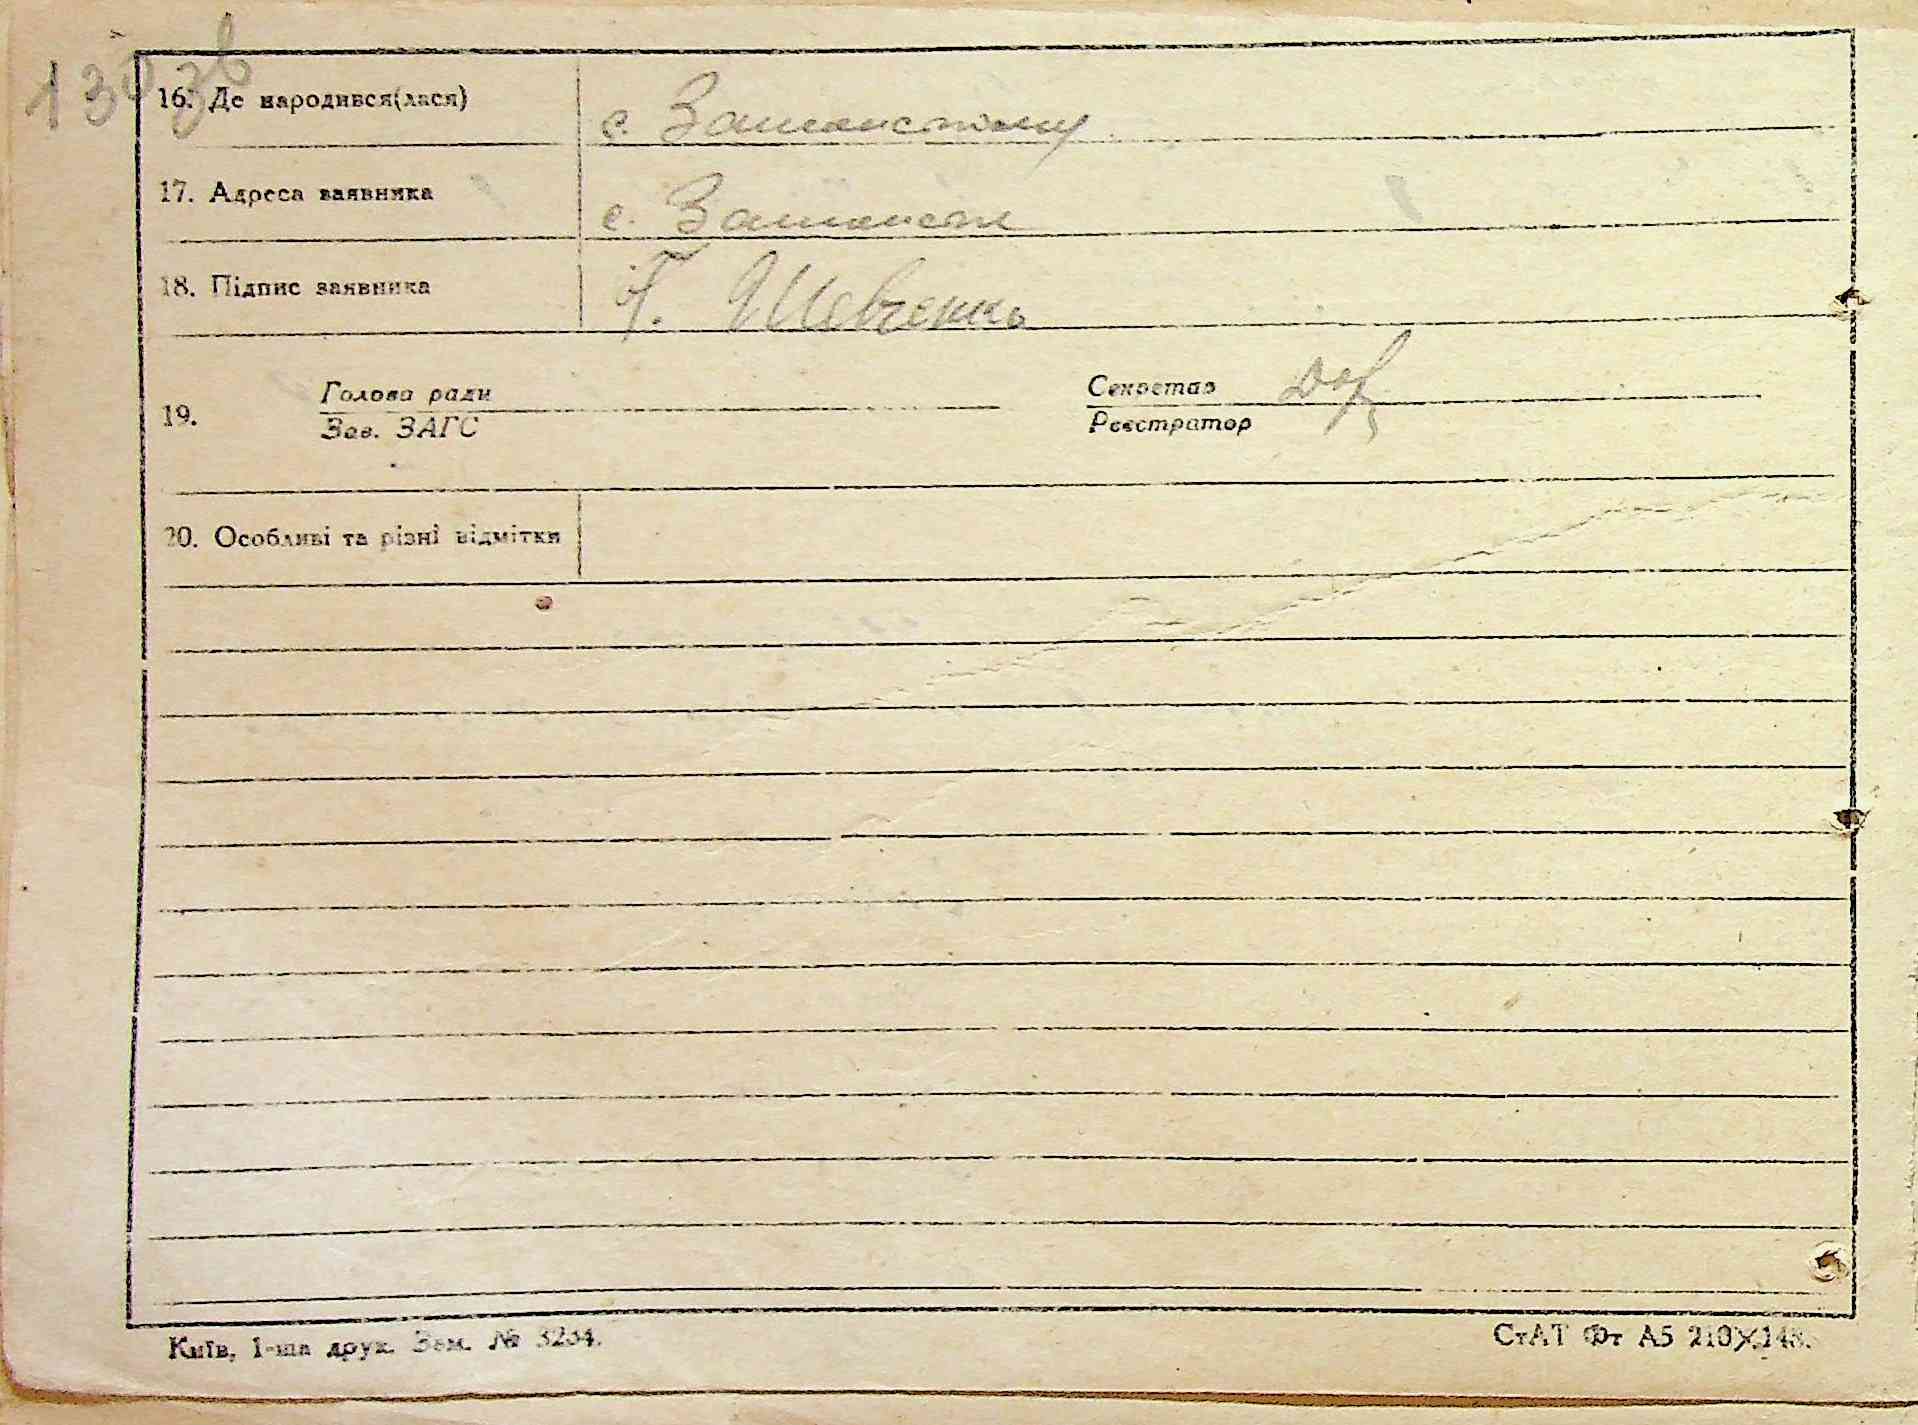 130 зв
16. Де народився(лася) с. Замостю
17. Адреса заявника с. Замостя
18. Підпис заявника Г. Шевченко
19. Голова ради Секретар
Зав. ЗАГС Реєстратор
20. Особливі та різні відмітки
Київ, 1-ша друк. Зам. № 3234.
СтАТ Фт А5 210×148.